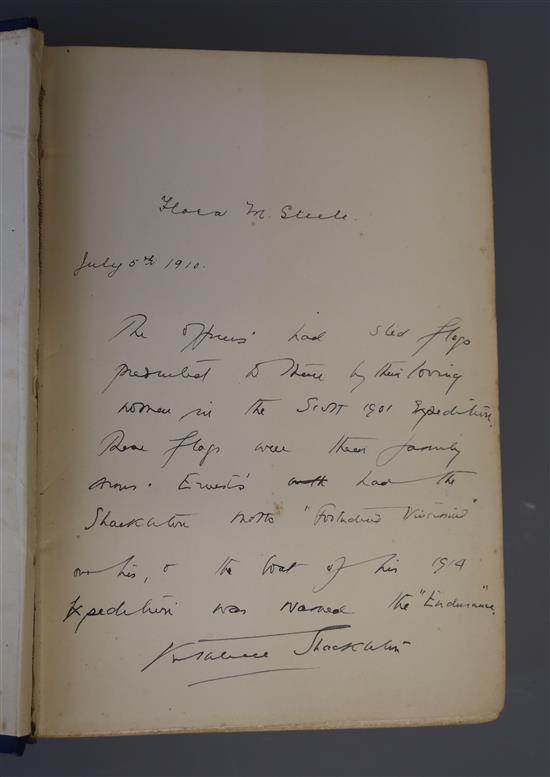 Flora M. Steele.
July 5th 1910.
The officers had sled flags
presented to them by their loving
women in the Scott 1901 Expedition.
These flags were their family
arms. Ernest's had the
Shackleton motto "Fortitudine Vincimus"
on his, & the boat of his 1914
Expedition was named the "Endurance".
Shackleton